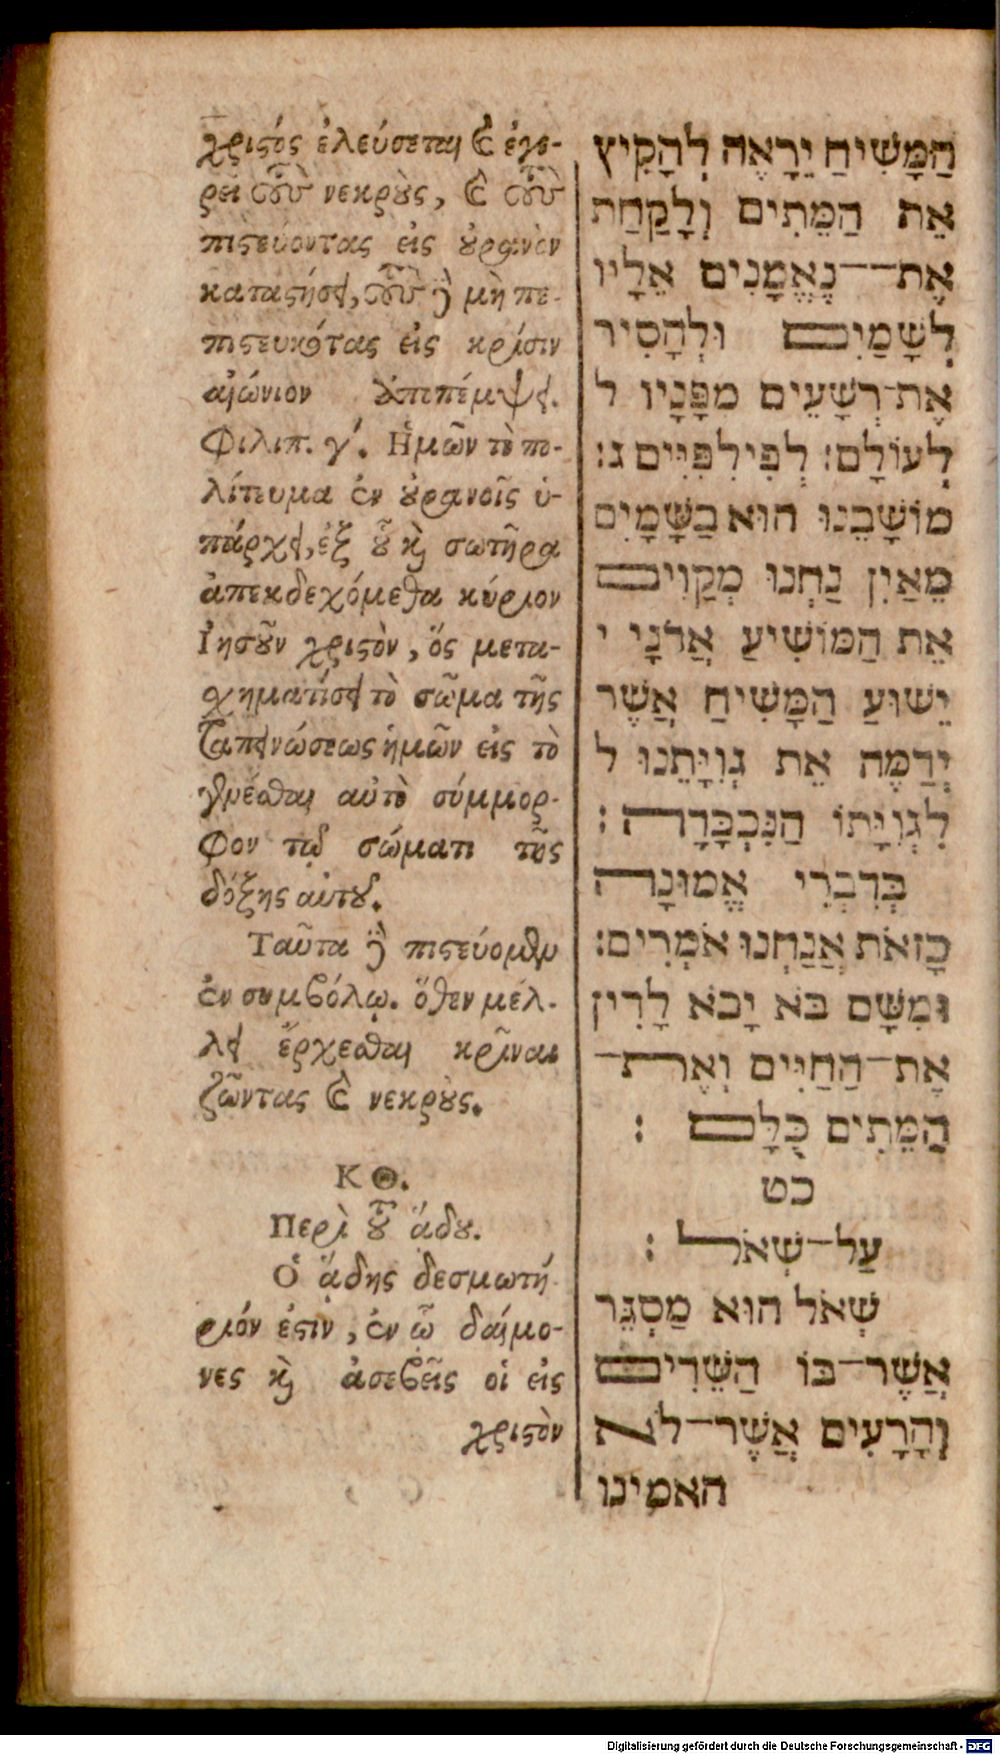 χριστός ἐλεύσεται καὶ ἐγε-
ρεῖ τοὺς νεκροὺς, καὶ τοὺς
πιστεύοντας εἰς οὐρανὸν
καταστήσει, τοὺς δὲ μὴ πε-
πιστευκότας εἰς κρίσιν
αἰώνιον ἀποπέμψει.
Φιλιπ. γ´. Ἡμῶν τὸ πο-
λίτευμα ἐν οὐρανοῖς ὑ-
πάρχει, ἐξ οὗ καὶ σωτῆρα
ἀπεκδεχόμεθα κύριον
Ἰησοῦν χριστὸν, ὅς μετα-
σχηματίσει τὸ σῶμα τῆς
ταπεινώσεως ἡμῶν εἰς τὸ
γενέσθαι αὐτὸ σύμμορ-
φον τῷ σώματι τῆς
δόξης αὐτοῦ.
Ταῦτα δὲ πιστεύομεν
ἐν συμβόλῳ. ὅθεν μέλ-
λει ἔρχεσθαι κρῖναι
ζῶντας καὶ νεκροὺς.
ΚΘ.
Περὶ τοῦ ἅδου.
Ὁ ᾅδης δεσμωτή-
ριόν ἐστιν, ἐν ᾧ δαίμο-
νες καὶ ἀσεβεῖς οἱ εἰς
χριστὸν
הַמָּשִׁיחַ יֵרָאֶה לְהָקִיץ
אֵת הַמֵּתִים וְלָקַחַת
אֶת־־נֶאֱמָנִים אֵלָיו
לְשָׁמַיִם וּלְהָסִיר
אֶת־רְשָׁעִים מפָּנָיו ל
לְעוֹלָם: לְפִילִפִּיִּים ג:
מוֹשָׁבֵנוּ הוּא בַשָּׁמָיִם
מֵאַיִן נַחְנוּ מְקַוִּים
אֵת הַמּוֹשִׁיעַ אֲדֹנָי י
יֵשׁוּעַ הַמָּשִׁיחַ אֲשֶׁר
יְדַמֶּה אֵת גְוִיָּתֵנוּ ל
לִגְוִיָּתוֹ הַנִּכְבָּדָה:
בְּדִבְרֵי אֱמוּנָה
כָזֹאת אֲנַחְנוּ אֹמְרִים:
וּמִשָּׁם בֹּא יָבֹא לָדִין
אֶת־הַחַיִּים וְאֶת־
הַמֵּתִים כֻּלָּם :
כט
עַל־שְׁאֹל :
שְׁאֹל הוּא מַסְגֵּר
אֲשֶׁר־בּוֹ הַשֵּׁדִים
וְהָרָעִים אֲשֶׁר־לֹא
האמינו
Digitalisierung gefördert durch die Deutsche Forschungsgemeinschaft - DFG